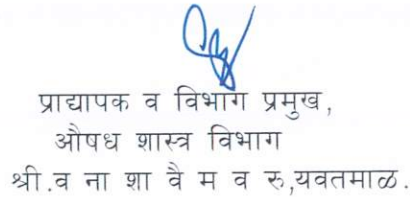 प्राद्यापक व विभाग प्रमुख,
औषध शास्त्र विभाग
श्री.व ना शा वै म व रु,यवतमाळ.